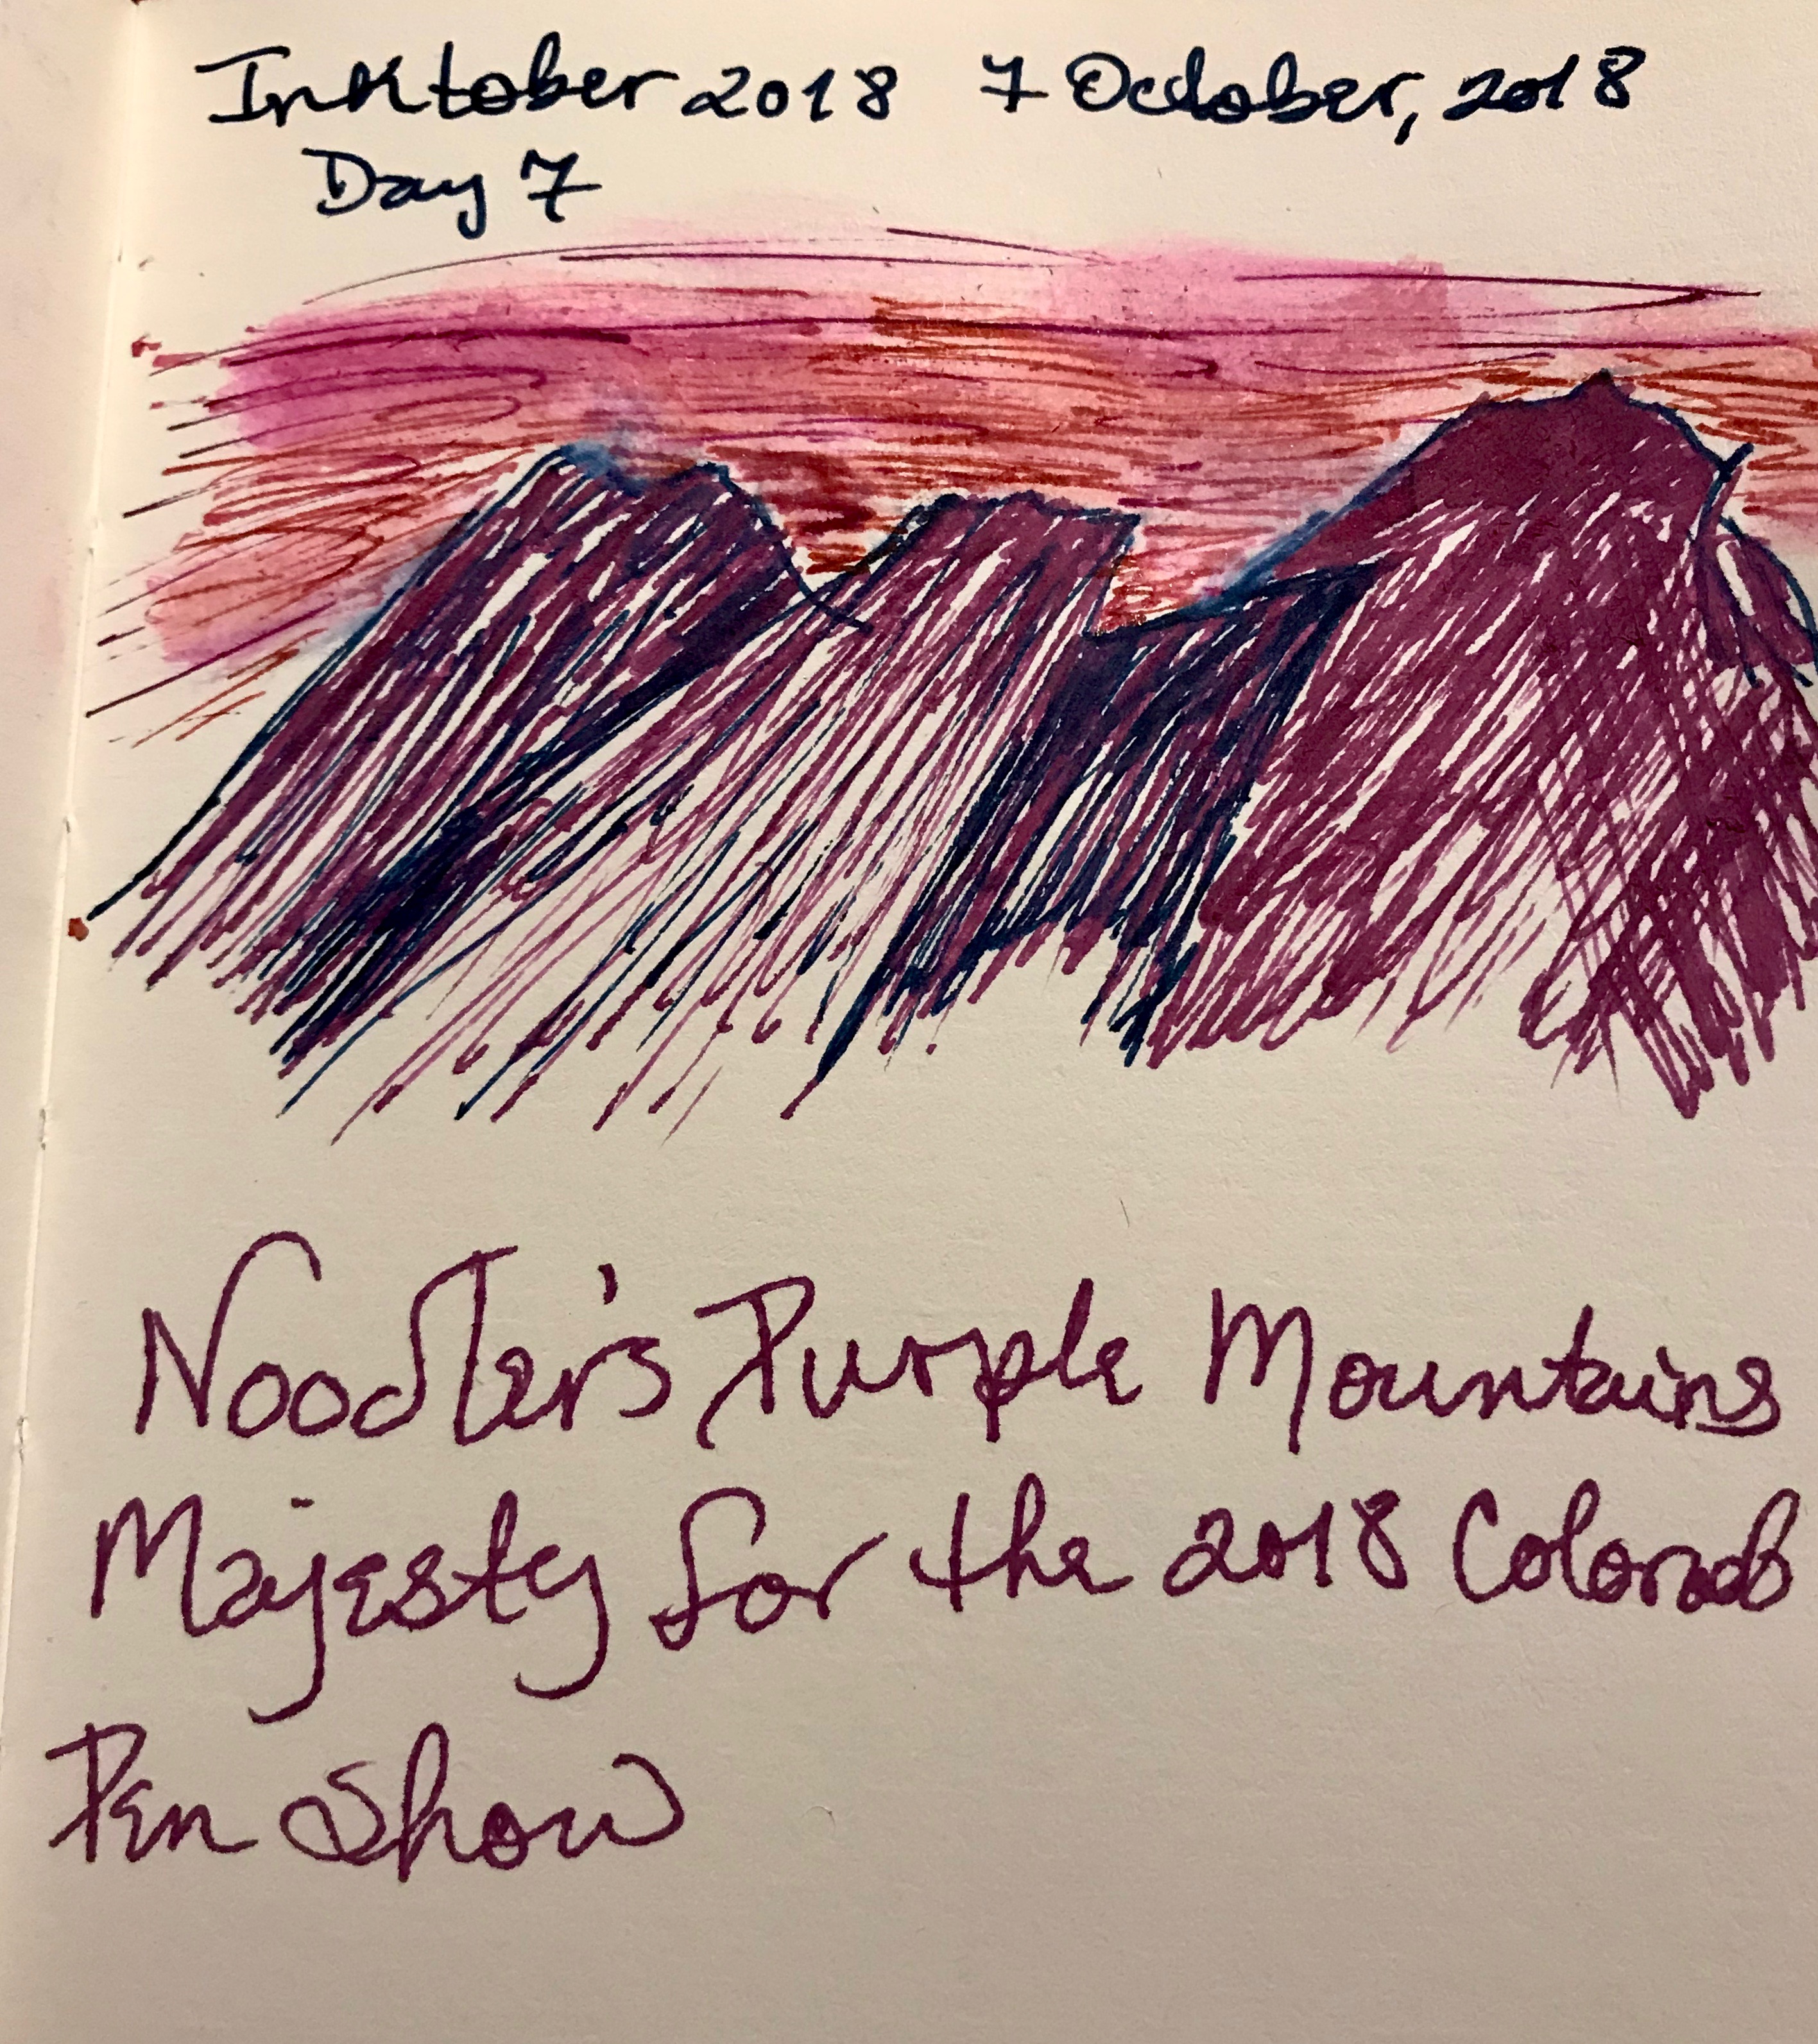 Inktober 2018 7 October, 2018
Day 7
Noodler's Purple Mountains
Majesty for the 2018 Colorado
Pen Show